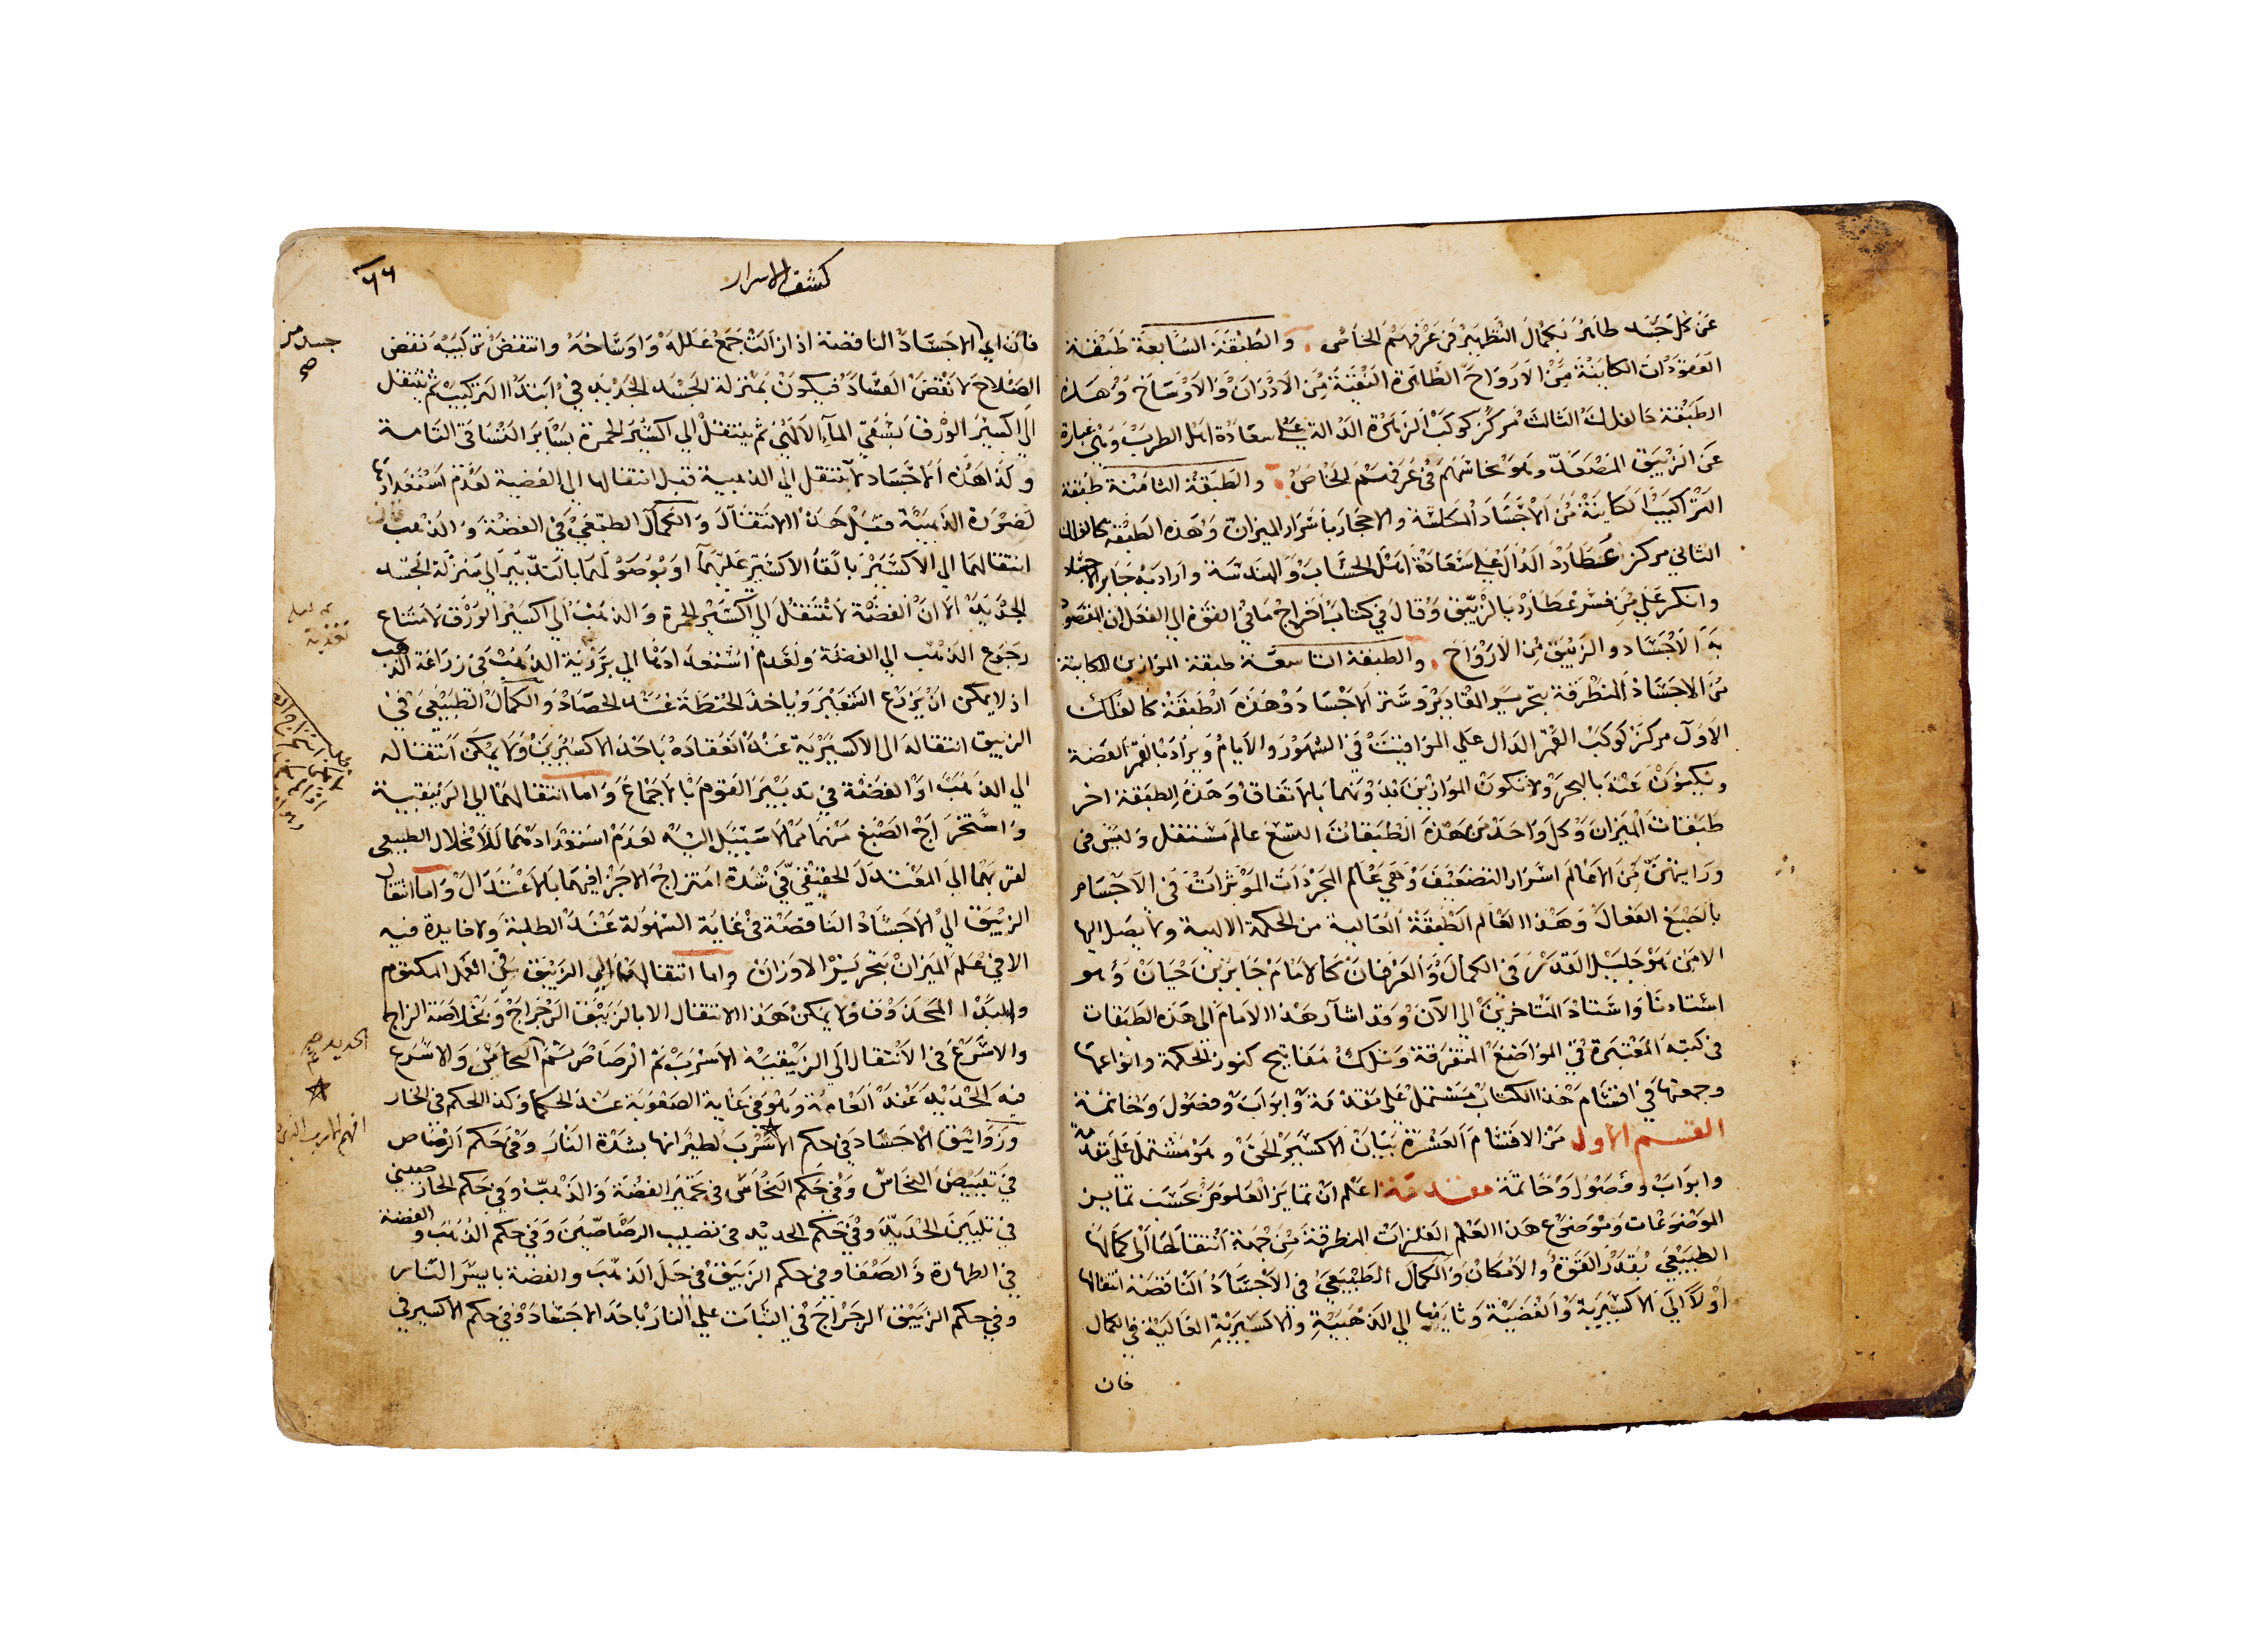 عن كل جسد طاهر بكمال التطهير في عرفهم الخاص . والطبقة السابعة طبقة
الكاينة من الارواح الطاهرة النقية من الادران والاوساخ وهذه
الطبقة كالفلك الثالث مركز كوكب الزهرة الدالة على سعادة اهل الطرب وهي عبارة
عن الزيبق المصعد وهو نحاسهم في عرفهم الخاص . والطبقة الثامنة طبقة
التراكيب الكاينة من الاجساد المكلسة والاحجار باسرار الميزان وهذه الطبقة كالفلك
الثاني مركز عطارد الدال علي سعادة اهل الحساب والهندسة واراد به جابر الاجساد
وانكر علي من فسر عطارد بالزيبق وقال في كتاب اخراج ما في القوة الي الفعل ان المقصود
به الاجساد والزيبق من الارواح . والطبقة التاسعة طبقة الموازين الكاينة
من الاجساد المنطرقة بتحرير المقادير وستر الاجساد وهذه الطبقة كالفلك
الاول مركز كوكب القمر الدال علي المواقيت في الشهور والايام ويراد بالقمر الفضة
ويكنون عنه بالبحر ولا تكون الموازين بدونهما بالاتفاق وهذه الطبقة اخر
طبقات الميزان وكل واحد من هذه الطبقات التسع عالم مستقل وليس في
ورايتهن من الاعالم اسرار التضعيف وهي عالم المجردات الموثرات في الاجسام
بالصبغ الفعال وهذا العالم الطبقة العالية من الحكمة الالهية ولا يصل اليها
الا من هو جليل القدر في الكمال والعرفان كالامام جابر بن حيان وهو
استادنا واستاد المتاخرين الي الآن وقد اشار هذا الامام الى هذه الطبقات
في كتبه المعتبرة في المواضع المتفرقة وتلك مفاتيح كنوز الحكمة وانواعها
وجمعتها في اقسام هذا الكتاب مشتمل علي مقدمة وابواب وفصول وخاتمة
القسم الاول من الاقسام العشرة بيان الاكسير الحق وهو مشتمل على مقدمة
وابواب وفصول وخاتمة مقدمة اعلم ان تمايز العلوم بحسب تمايز
الموضوعات وموضوع هذا العلم الفلزات المنطرقة من جهة انتقالها الى كمالها
الطبيعي بقدر القوة والامكان والكمال الطبيعي في الاجساد الناقصة انتقالها
اولاً الي الاكسيرية والفضية وثانيها الي الذهبية والاكسيرية العالية في الكمال
فان
كشف الاسرار
٦٦
فان اي الاجساد الناقصة اذا زالت جمع علله واوساخه وانتقض تركيبه نقض
الصلاح لا نقض الفساد فيكون بمنزلة الجسد الجديد في ابتدا التركيب ثم ينتقل
الى اكسير الورق بسقي المآء الالهي ثم ينتقل الي اكسير الحمرة بساير التساقي التامة
وكذا هذه الاجساد لا ينتقل الي الذهبية قبل انتقالها الي الفضية لعدم استعدادها
لصورة الذهبية قبل هذا الانتقال والكمال الطبيعي في الفضة والذهب
انتقالهما الي الاكسير بالقا الاكسير عليهما او بوصولهما بالتدبير الي منزلة الجسد
الجديد الا ان الفضة لا تنتقل الي اكسير الحمرة والذهب الي اكسير الورق لامتناع
رجوع الذهب الي الفضة ولعدم استعدادها الي بزرية الذهب في زراعة الذهب
اذ لا يمكن ان يزرع الشعير وياخذ الحنطة عند الحصاد والكمال الطبيعي في
الزيبق انتقاله الى الاكسيرية عند انعقاده باحد الاكسيرين ولا يمكن انتقاله
الي الذهب او الفضة في تدبير القوم بالاجماع واما انتقالهما الي الزيبقية
واستخراج الصبغ منهما مما لا سبيل اليه لعدم استعدادهما للانحلال الطبيعي
لقربهما الي المعتدل الحقيقي في شدة امتزاج الاجزا فيهما بالاعتدال واما انتقال
الزيبق الي الاجساد الناقصة في غاية السهولة عند الطلبة ولا فايدة فيه
الا في علم الميزان بتحرير الاوزان واما انتقالها الي الزيبق في العمل المكتوم
والمبدا المحذوف ولا يمكن هذا الانتقال الا بالزيبق الرجراج وبخلاصة الزاج
والاسرع في الانتقال الي الزيبقية الاسرب ثم الرصاص ثم النحاس والاسرع
فيه الحديد عند العامة وهو في غاية الصعوبة عند الحكما وكذا الحكم في الخار
وزوابيق الاجساد في حكم الاسرب لطيرانها بشدة النار وفي حكم الرصاص
في تبييض النحاس وفي حكم النحاس في تحمير الفضة والذهب وفي حكم الخار صيني
في تليين الحديد وفي حكم الحديد في تصليب الرصاصين وفي حكم الذهب والفضة
في الطهارة والصفا وفي حكم الزيبق في حل الذهب والفضة بايسر النار
وفي حكم الزيبق الرجراج في الثبات علي النار باحد الاجساد وفي حكم الاكسير في